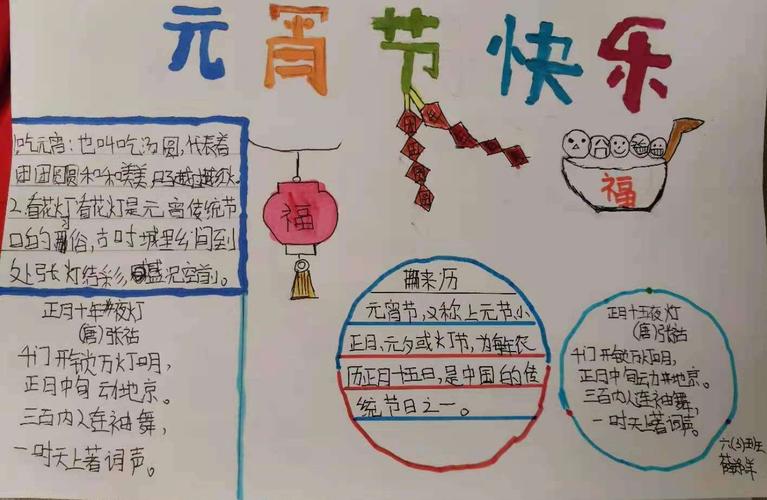 元宵节快乐
吃元宵:也叫吃汤圆,代表着
团团圆圆和和美美,日子越过越红火。
2.看花灯看花灯是元宵传统节
日的习俗,古时城里乡间到
处张灯结彩,盛况空前。
福
福
正月十年夜灯
(唐)张祜
千门开锁万灯明,
正月中旬动地京。
三百内人连袖舞,
一时天上著词声。
来历
元宵节,又称上元节、小
正月、元夕或灯节,为每年农
历正月十五日,是中国的传
统节日之一。
正月十五夜灯
(唐)张祜
千门开锁万灯明,
正月中旬动地京。
三百内人连袖舞,
一时天上著词声。
六(3)班